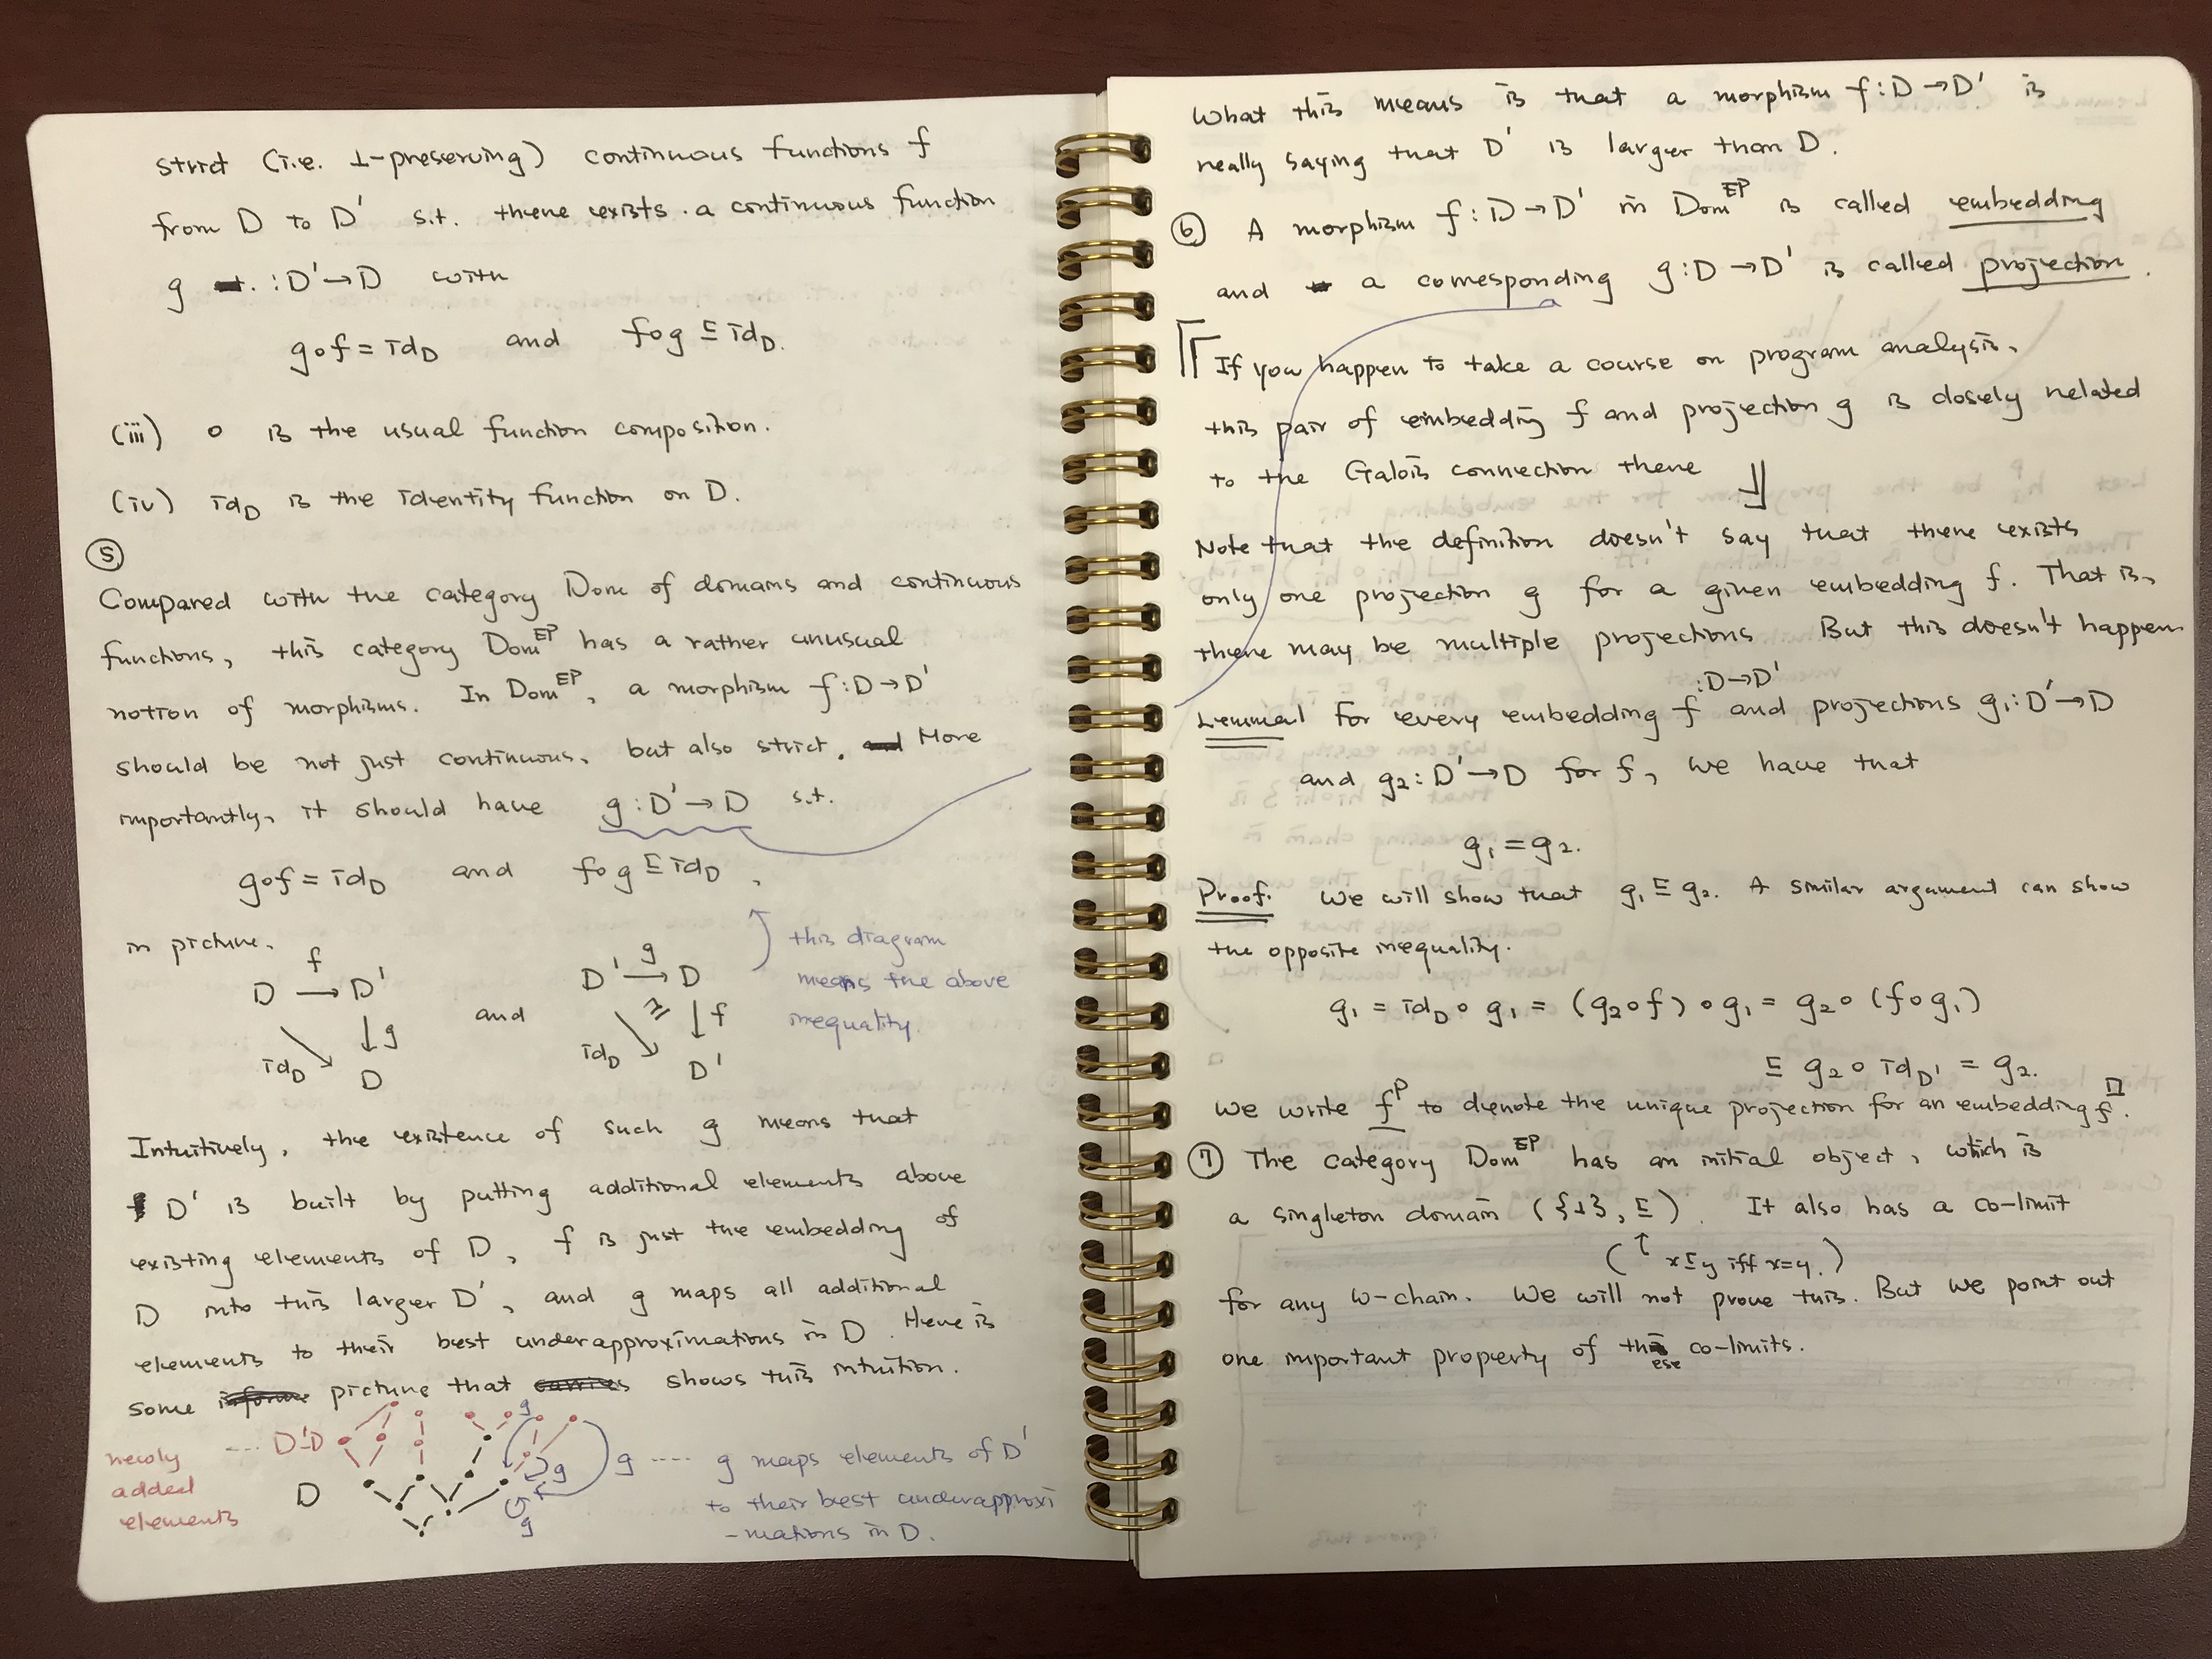 strict (i.e. ⊥-preserving) continuous functions f
from D to D' s.t. there exists a continuous function
g : D'→D with
g∘f = id_D and f∘g ⊑ id_D.
(iii) ∘ is the usual function composition.
(iv) id_D is the identity function on D.
⑤
Compared with the category Dom of domains and continuous
functions, this category Dom^EP has a rather unusual
notion of morphisms. In Dom^EP, a morphism f:D→D'
should be not just continuous, but also strict. More
importantly, it should have g:D'→D s.t.
g∘f = id_D and f∘g ⊑ id_D,
in picture,
D →f D' and D' →g D
id_D ↘ ↓g id_D ↘ ⊒ ↓f
D D'
this diagram
means the above
inequality.
Intuitively, the existence of such g means that
D' is built by putting additional elements above
existing elements of D, f is just the embedding of
D into this larger D', and g maps all additional
elements to their best underapproximations in D. Here is
some picture that shows this intuition.
newly
added
elements
---- D'-D
D
g
g
g
g ---- g maps elements of D'
to their best underapproxi
-mations in D.
What this means is that a morphism f:D→D' is
really saying that D' is larger than D.
⑥ A morphism f:D→D' in Dom^EP is called embedding
and a corresponding g:D→D' is called projection.
If you happen to take a course on program analysis,
this pair of embedding f and projection g is closely related
to the Galois connection there
Note that the definition doesn't say that there exists
only one projection g for a given embedding f. That is,
there may be multiple projections But this doesn't happen.
:D→D'
Lemma1 For every embedding f and projections g₁:D'→D
and g₂:D'→D for f, we have that
g₁ = g₂.
Proof. We will show that g₁ ⊑ g₂. A similar argument can show
the opposite inequality.
g₁ = id_D ∘ g₁ = (g₂∘f) ∘ g₁ = g₂∘(f∘g₁)
⊑ g₂ ∘ id_D' = g₂. □
We write f^P to denote the unique projection for an embedding f.
⑦ The category Dom^EP has an initial object, which is
a singleton domain ({⊥}, ⊑). It also has a co-limit
(↑ x⊑y iff x=y.)
for any ω-chain. We will not prove this. But we point out
one important property of these co-limits.